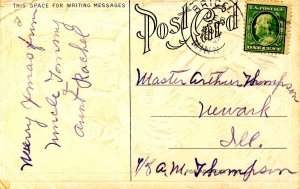 THIS SPACE FOR WRITING MESSAGES
Post Card
Merry Xmas from
Uncle Tommy
Aunt Rachel
U.S. POSTAGE
ONE CENT
Master Arthur Thompson
Newark
Ill.
A.M. Thompson